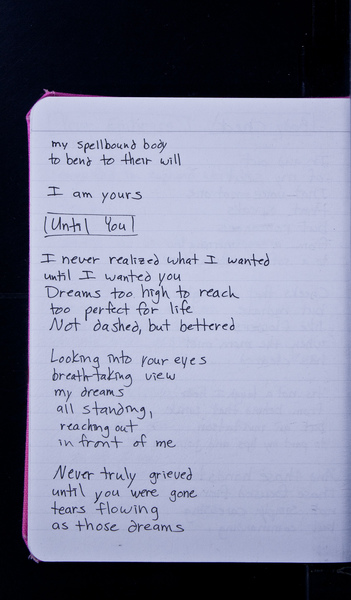 my spellbound body
to bend to their will
I am yours
Until You
I never realized what I wanted
until I wanted you
Dreams too high to reach
too perfect for life
Not dashed, but bettered
Looking into your eyes
breath-taking view
my dreams
all standing,
reaching out
in front of me
Never truly grieved
until you were gone
tears flowing
as those dreams